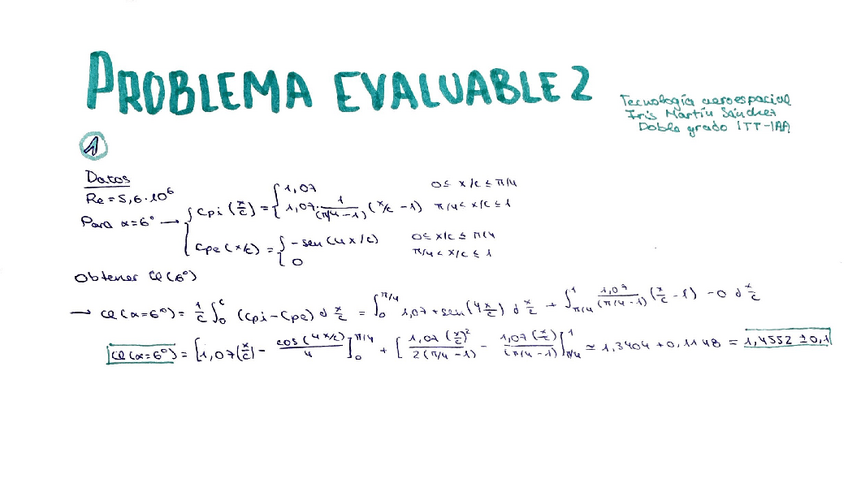 PROBLEMA EVALUABLE 2
Tecnología aeroespacial
Iris Martín Sánchez
Doble grado ITT-IAA
1
Datos
Re = 5,6·10⁶
Para α=6° → { Cpi (x/c) = { 1,07 0 ≤ x/c ≤ π/4
1,07· 1/(π/4 -1) (x/c -1) π/4 < x/c ≤ 1
Cpe (x/c) = { -sen (4x/c) 0 ≤ x/c ≤ π/4
0 π/4 < x/c ≤ 1
Obtener Cl (6°)
→ Cl (α=6°) = 1/c ∫₀ᶜ (Cpi - Cpe) d x/c = ∫₀^(π/4) 1,07 + sen (4x/c) d x/c + ∫_(π/4)^1 1,07/(π/4 -1) (x/c -1) - 0 d x/c
Cl (α=6°) = [1,07 (x/c) - cos (4x/c)/4]₀^(π/4) + [1,07 (x/c)²/2(π/4 -1) - 1,07 (x/c)/(π/4 -1)]_(π/4)^1 ≃ 1,3404 + 0,1148 = 1,4552 ± 0,1